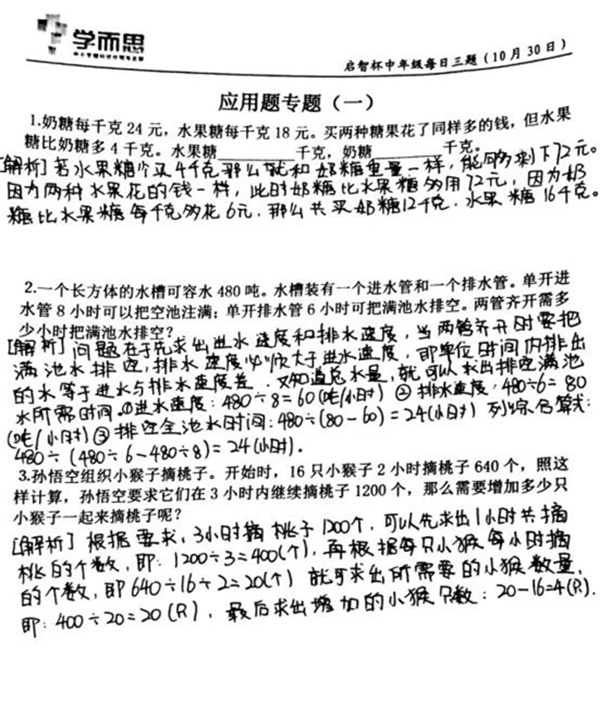 学而思
启智杯中年级每日三题（10月30日）
应用题专题（一）
1.奶糖每千克24元，水果糖每千克18元。买两种糖果花了同样多的钱，但水果
糖比奶糖多4千克。水果糖________千克，奶糖________千克。
[解析]若水果糖少买4千克那么就和奶糖重量一样，能同多剩下72元。
因为两种水果花的钱一样，此时奶糖比水果糖多用72元，因为奶
糖比水果糖每千克多花6元，那么共买奶糖12千克，水果糖16千克。
2.一个长方体的水槽可容水480吨。水槽装有一个进水管和一个排水管。单开进
水管8小时可以把空池注满；单开排水管6小时可把满池水排空。两管齐开需多
少小时把满池水排空？
[解析]问题在于先求出进水速度和排水速度，当两管齐开时要把
满池水排空，排水速度必须大于进水速度，即单位时间内排出
的水等于进水与排水速度差，又知道总水量，就可以求出排空满池
水所需时间。①进水速度：480÷8=60(吨/小时) ②排水速度：480÷6=80
(吨/小时) ③排空全池水时间：480÷(80-60)=24(小时) 列综合算式：
480÷(480÷6-480÷8)=24(小时).
3.孙悟空组织小猴子摘桃子。开始时，16只小猴子2小时摘桃子640个，照这
样计算，孙悟空要求它们在3小时内继续摘桃子1200个，那么需要增加多少只
小猴子一起来摘桃子呢？
[解析]根据要求，3小时摘桃子1200个，可以先求出1小时共摘
桃的个数，即：1200÷3=400(个)，再根据每只小猴每小时摘
的个数，即640÷16÷2=20(个) 就可求出所需要的小猴数量，
即：400÷20=20(只)，最后求出增加的小猴只数：20-16=4(只).